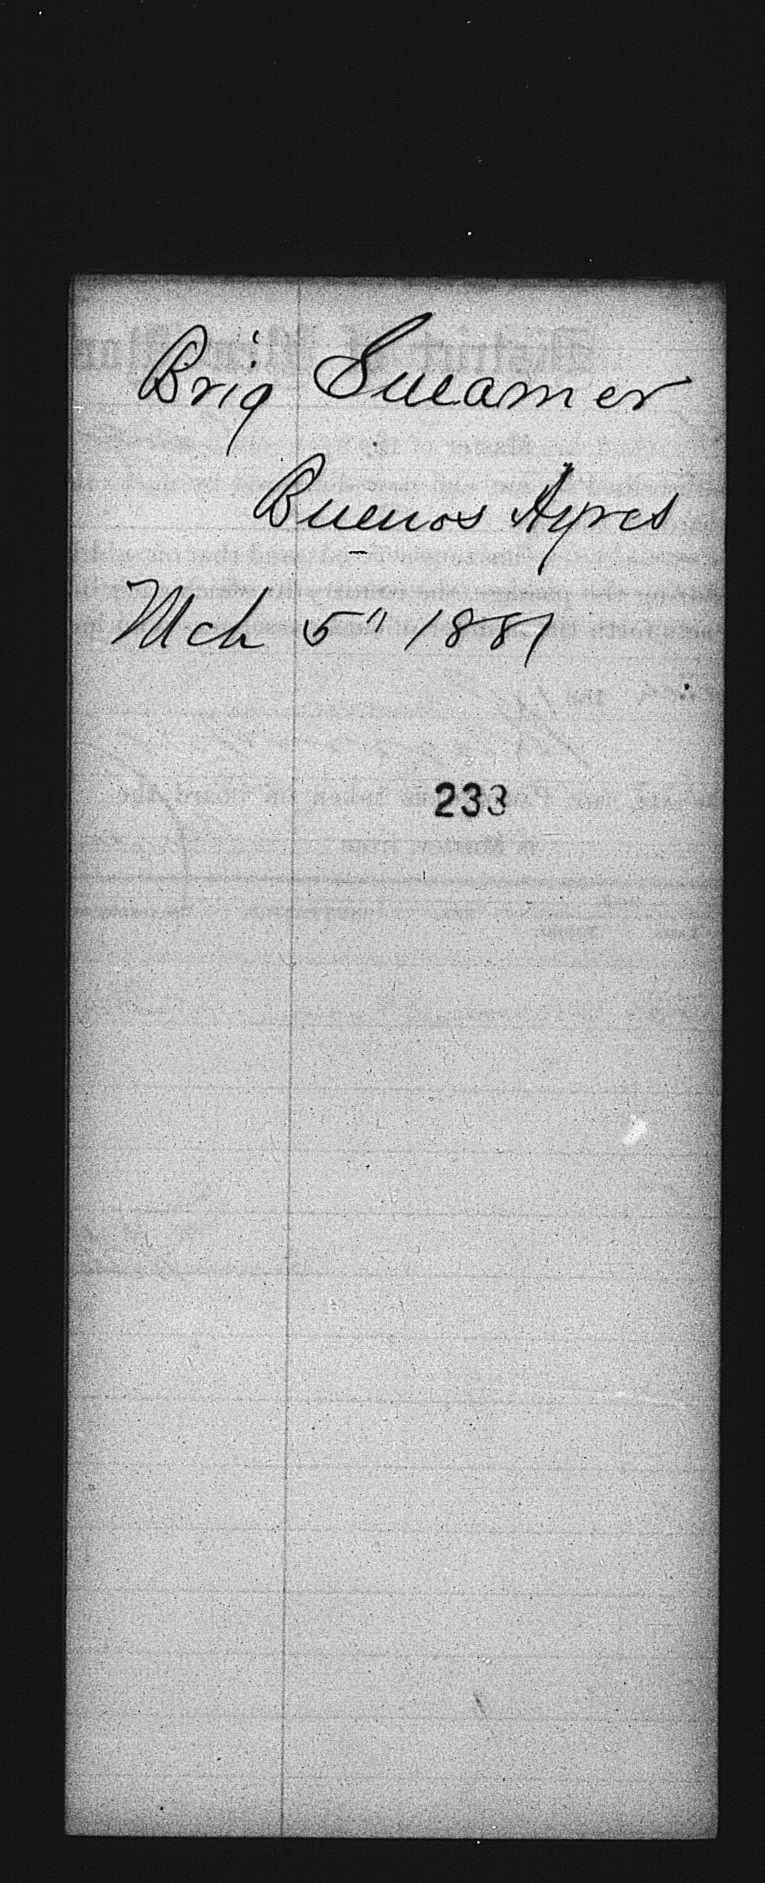 Brig Sueamer
Buenos Ayres
Mch 5" 1881
233